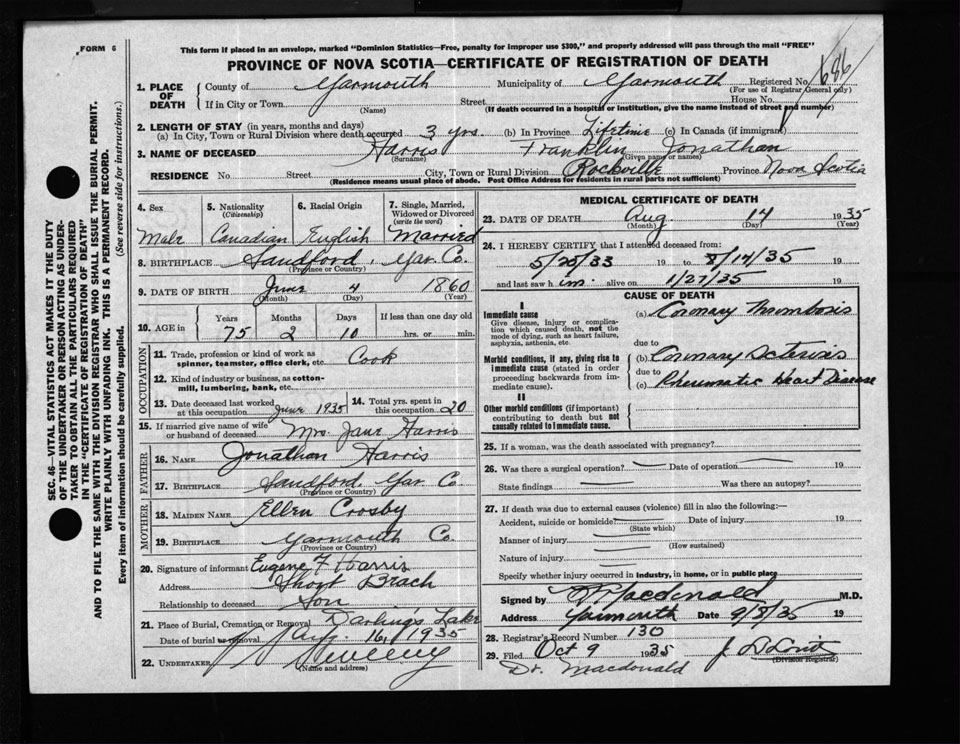 FORM 6
This form if placed in an envelope, marked "Dominion Statistics—Free, penalty for improper use $300," and properly addressed will pass through the mail "FREE"
PROVINCE OF NOVA SCOTIA—CERTIFICATE OF REGISTRATION OF DEATH
686
1. PLACE OF DEATH
County of Yarmouth Municipality of Yarmouth Registered No.
(For use of Registrar General only)
If in City or Town (Name) Street House No.
(If death occurred in a hospital or institution, give the name instead of street and number)
2. LENGTH OF STAY (in years, months and days)
(a) In City, Town or Rural Division where death occurred 3 yrs. (b) In Province Lifetime (c) In Canada (if immigrant)
3. NAME OF DECEASED Harris Franklin Jonathan
(Surname) (Given name or names)
RESIDENCE No. Street City, Town or Rural Division Rockville Province Nova Scotia
(Residence means usual place of abode. Post Office Address for residents in rural parts not sufficient)
4. Sex Male
5. Nationality (Citizenship) Canadian
6. Racial Origin English
7. Single, Married, Widowed or Divorced (write the word) Married
8. BIRTHPLACE Sandford, Yar. Co.
(Province or Country)
9. DATE OF BIRTH June 4 1860
(Month) (Day) (Year)
10. AGE in Years Months Days If less than one day old
75 2 10 hrs. or min.
OCCUPATION
11. Trade, profession or kind of work as spinner, teamster, office clerk, etc. Cook
12. Kind of industry or business, as cotton-mill, lumbering, bank, etc.
13. Date deceased last worked at this occupation June 1935
14. Total yrs. spent in this occupation 20
15. If married give name of wife or husband of deceased Mrs. Jane Harris
FATHER
16. NAME Jonathan Harris
17. BIRTHPLACE Sandford, Yar. Co.
(Province or Country)
MOTHER
18. MAIDEN NAME Ellen Crosby
19. BIRTHPLACE Yarmouth Co.
(Province or Country)
20. Signature of informant Eugene F Harris
Address Short Beach
Relationship to deceased Son
21. Place of Burial, Cremation or Removal Darling's Lake
Date of burial or removal Aug. 16, 1935
22. UNDERTAKER Sweeny
(Name and address)
MEDICAL CERTIFICATE OF DEATH
23. DATE OF DEATH Aug. 14 1935
(Month) (Day) (Year)
24. I HEREBY CERTIFY that I attended deceased from:
5/25/33 19 to 8/14/35 19
and last saw him alive on 1/27/35 19
CAUSE OF DEATH
I
Immediate cause
Give disease, injury or complication which caused death, not the mode of dying, such as heart failure, asphyxia, asthenia, etc.
(a) Coronary Thrombosis
due to
Morbid conditions, if any, giving rise to immediate cause (stated in order proceeding backwards from immediate cause).
(b) Coronary Sclerosis
due to
(c) Rheumatic Heart Disease
II
Other morbid conditions (if important) contributing to death but not causally related to immediate cause.
25. If a woman, was the death associated with pregnancy?
26. Was there a surgical operation? Date of operation 19
State findings Was there an autopsy?
27. If death was due to external causes (violence) fill in also the following:—
Accident, suicide or homicide? Date of injury 19
(State which)
Manner of injury
(How sustained)
Nature of injury
Specify whether injury occurred in industry, in home, or in public place
Signed by Macdonald M.D.
Address Yarmouth Date 9/5/35 19
28. Registrar's Record Number 130
29. Filed Oct 9 1935
(Division Registrar)
Dr. Macdonald
SEC. 46—VITAL STATISTICS ACT MAKES IT THE DUTY
OF THE UNDERTAKER OR PERSON ACTING AS UNDER-
TAKER TO OBTAIN ALL THE PARTICULARS REQUIRED
IN THE "CERTIFICATE OF REGISTRATION OF DEATH"
AND TO FILE THE SAME WITH THE DIVISION REGISTRAR WHO SHALL ISSUE THE BURIAL PERMIT.
WRITE PLAINLY WITH UNFADING INK. THIS IS A PERMANENT RECORD.
Every item of information should be carefully supplied. (See reverse side for instructions.)